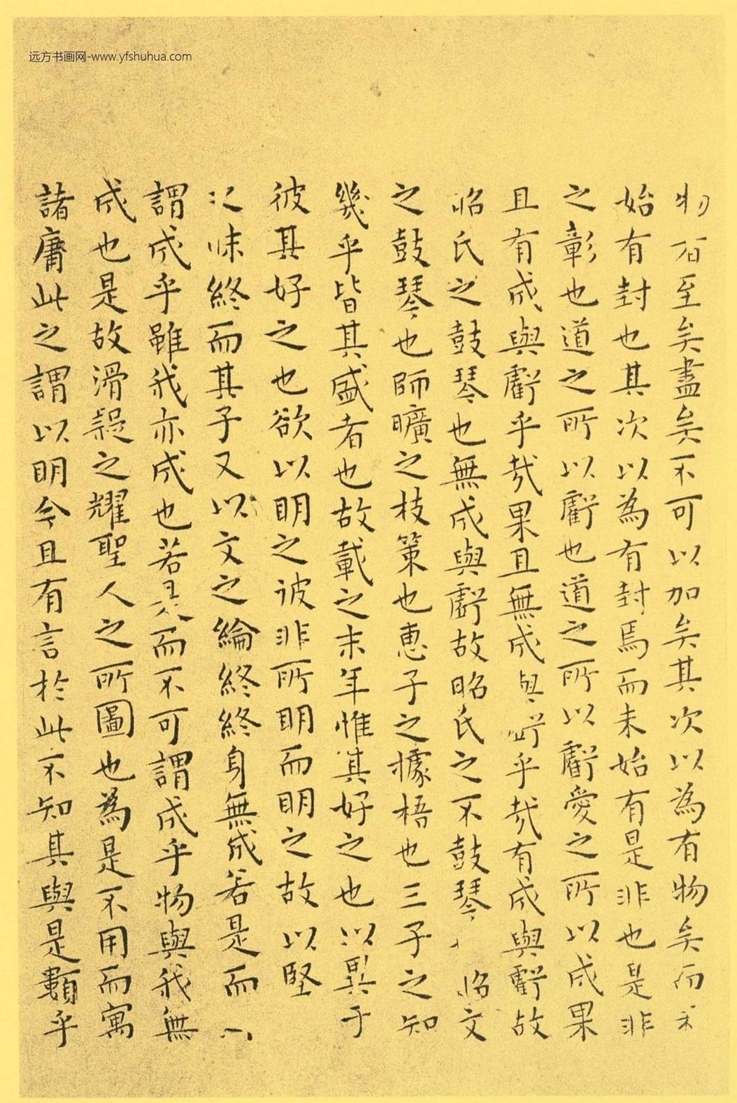 远方书画网-www.yfshuhua.com
物者至矣盡矣不可以加矣其次以為有物矣而未
始有封也其次以為有封焉而未始有是非也是非
之彰也道之所以虧也道之所以虧愛之所以成果
且有成與虧乎哉果且無成與虧乎哉有成與虧故
昭氏之鼓琴也無成與虧故昭氏之不鼓琴也昭文
之鼓琴也師曠之枝策也惠子之據梧也三子之知
幾乎皆其盛者也故載之末年惟其好之也以異于
彼其好之也欲以明之彼非所明而明之故以堅
之昧終而其子又以文之綸終終身無成若是而
謂成乎雖我亦成也若是而不可謂成乎物與我無
成也是故滑疑之耀聖人之所圖也為是不用而寓
諸庸此之謂以明今且有言於此不知其與是類乎